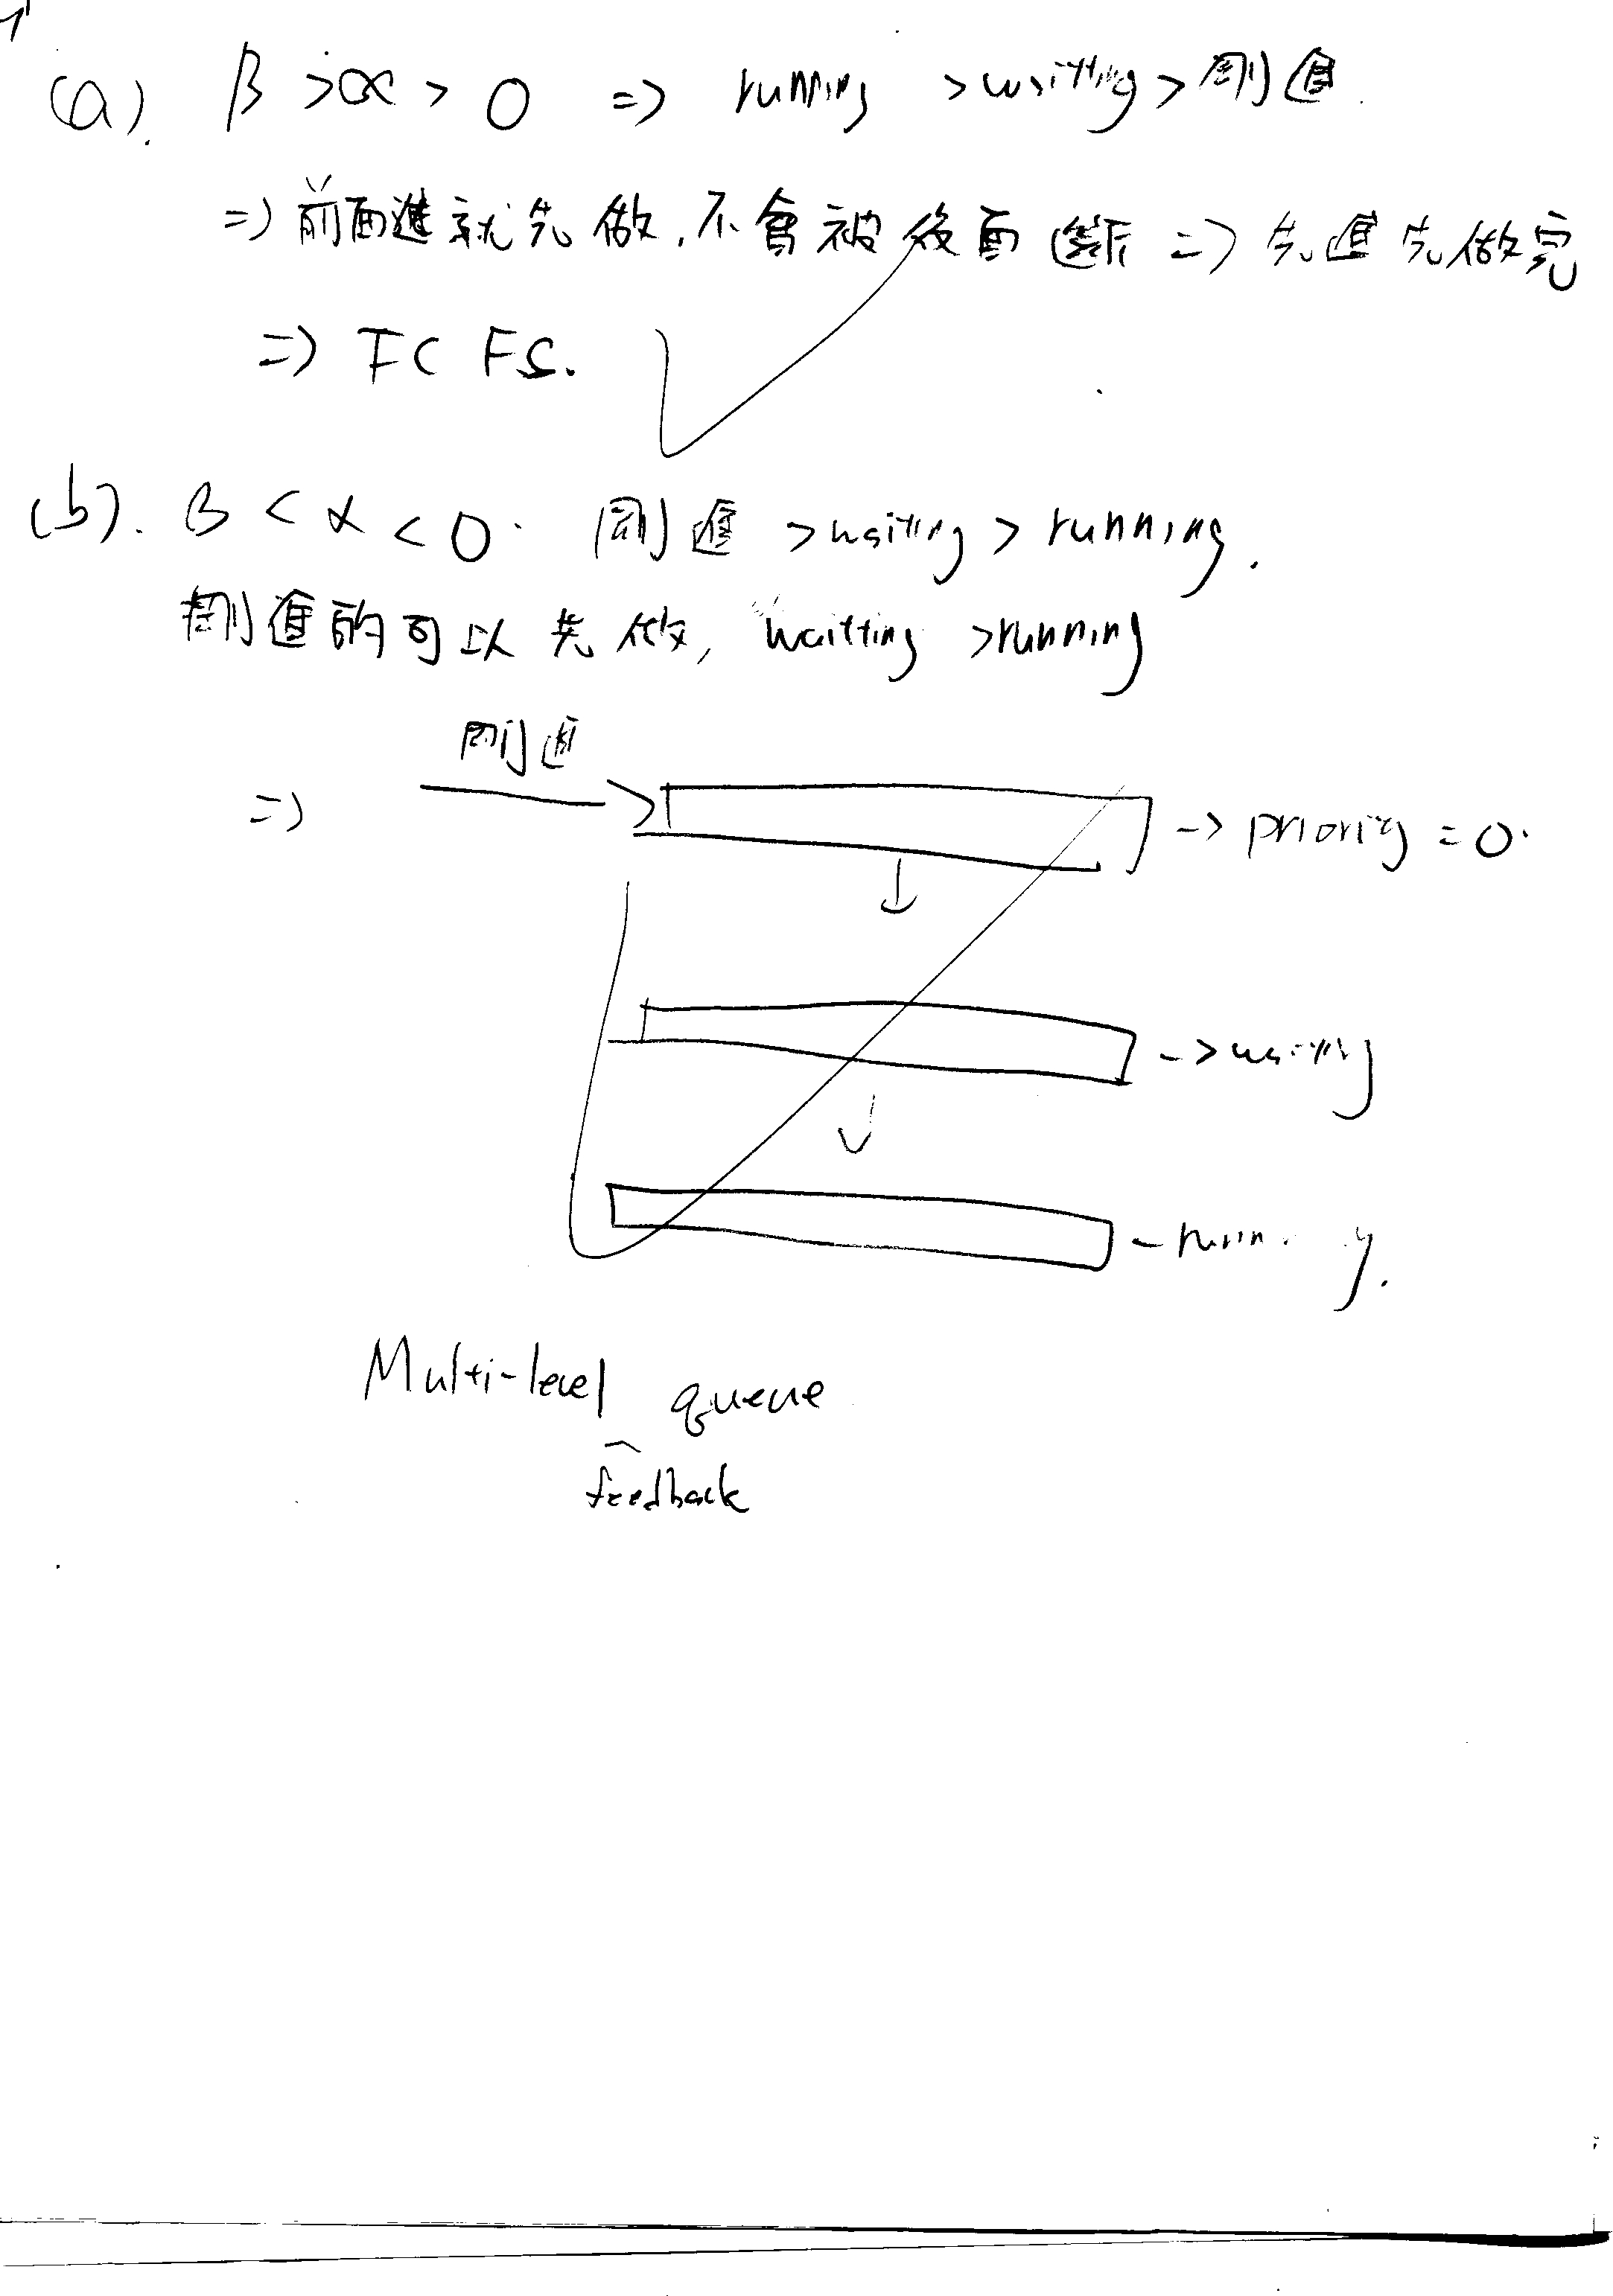 (a). β > α > 0 => running > waitting > 剛進.
=> 前面進就先做, 不會被後面斷 => 先進先做完
=> FCFS.
(b). β < α < 0. 剛進 > waiting > running.
剛進的可以先做, waitting > running
剛進
=> -> priority = 0.
-> waiting
- running.
Multi-level queue
feedback